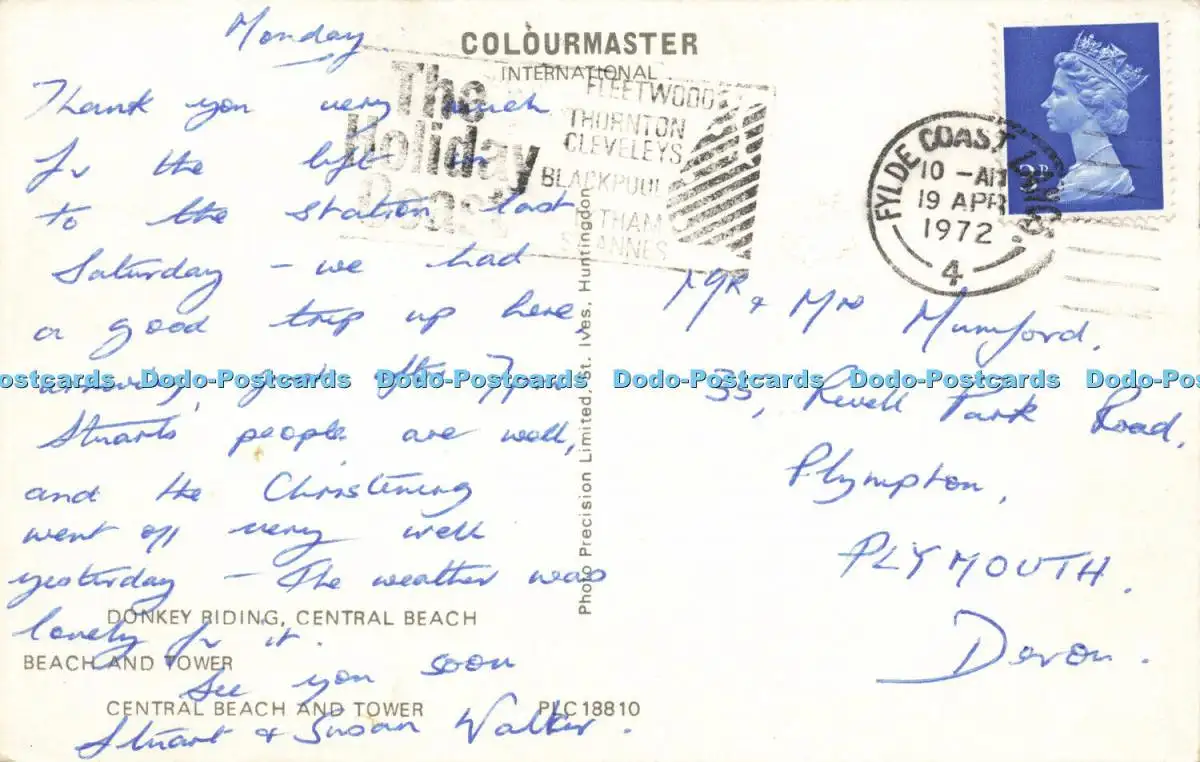 Monday
Thank you very much
for the lift in
to the station last
Saturday - we had
a good trip up here,
just after 7pm
Stuarts people are well,
and the Christening
went off very well
yesterday - The weather was
lovely for it.
See you soon
Stuart & Susan Walker.
COLOURMASTER
INTERNATIONAL
The Holiday Coast
FLEETWOOD
THORNTON
CLEVELEYS
BLACKPOOL
LYTHAM
ST ANNES
FYLDE COAST LANCS.
10 - AM
19 APR
1972
4
3P
Mr & Mrs Mumford.
35, Revell Park Road,
Plympton,
PLYMOUTH.
Devon.
Photo Precision Limited, St. Ives, Huntingdon
DONKEY RIDING, CENTRAL BEACH
BEACH AND TOWER
CENTRAL BEACH AND TOWER PLC18810
ostcards Dodo-Postcards Dodo-Postcards Dodo-Postcards Dodo-Postcards Dodo-Postc